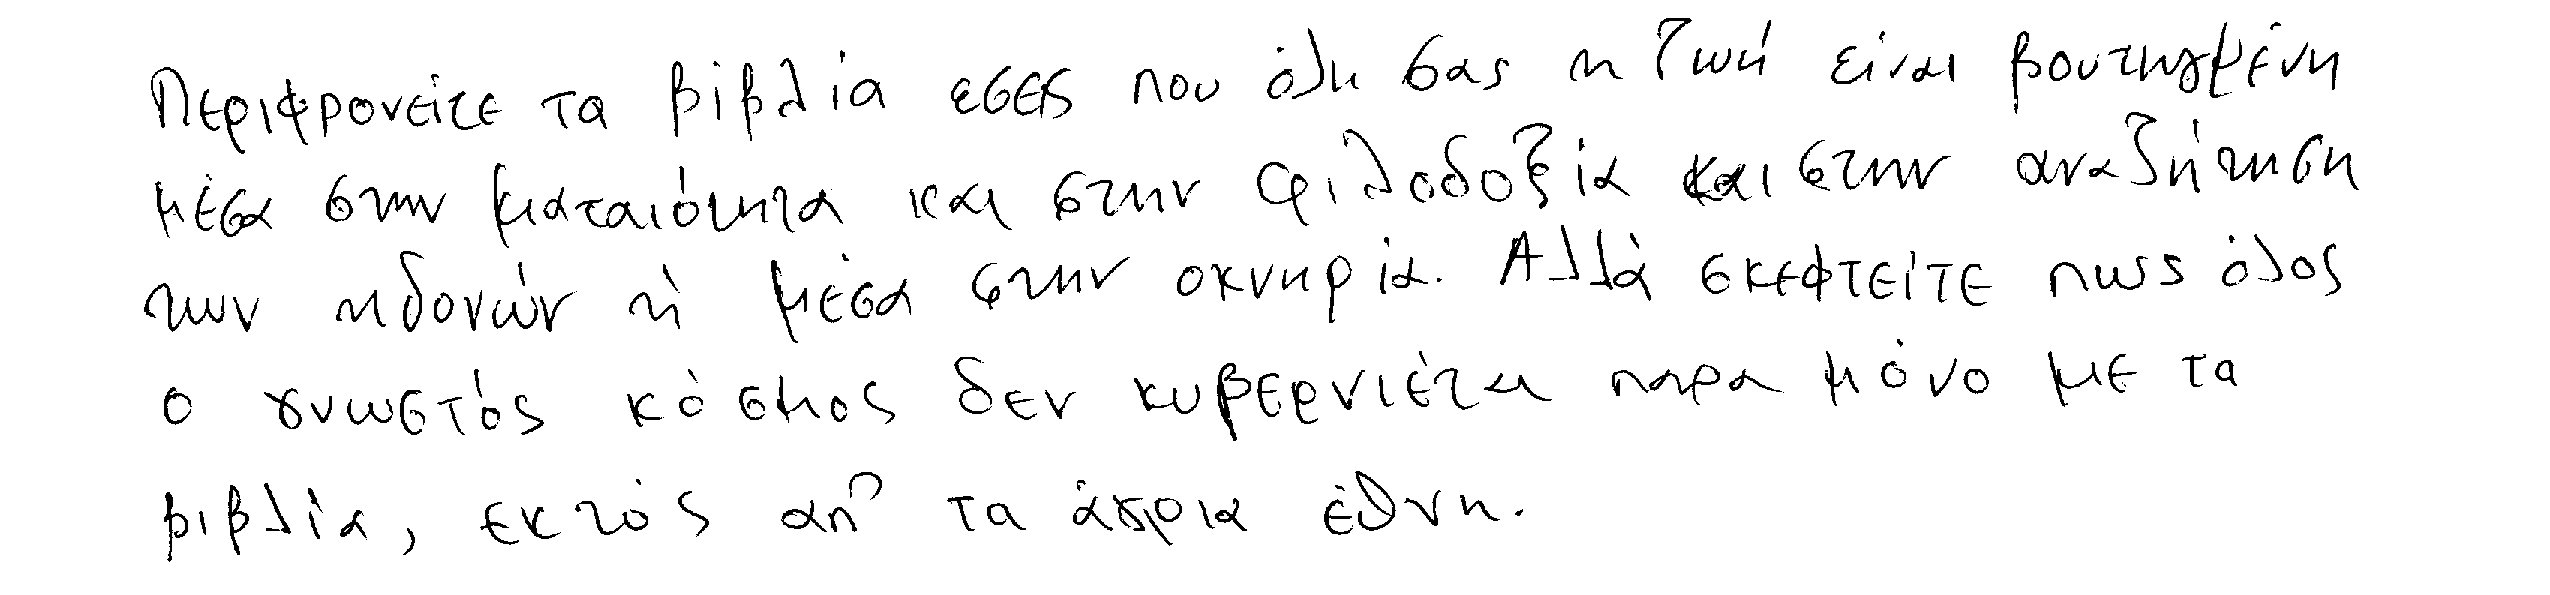 Περιφρονείτε τα βιβλία εσείς που όλη σας η ζωή είναι βουτηγμένη
μέσα στην ματαιότητα και στην φιλοδοξία και στην αναζήτηση
των ηδονών ή μέσα στην οκνηρία. Αλλά σκεφτείτε πως όλος
ο γνωστός κόσμος δεν κυβερνιέται παρα μόνο με τα
βιβλία, εκτός απ' τα άγρια έθνη.